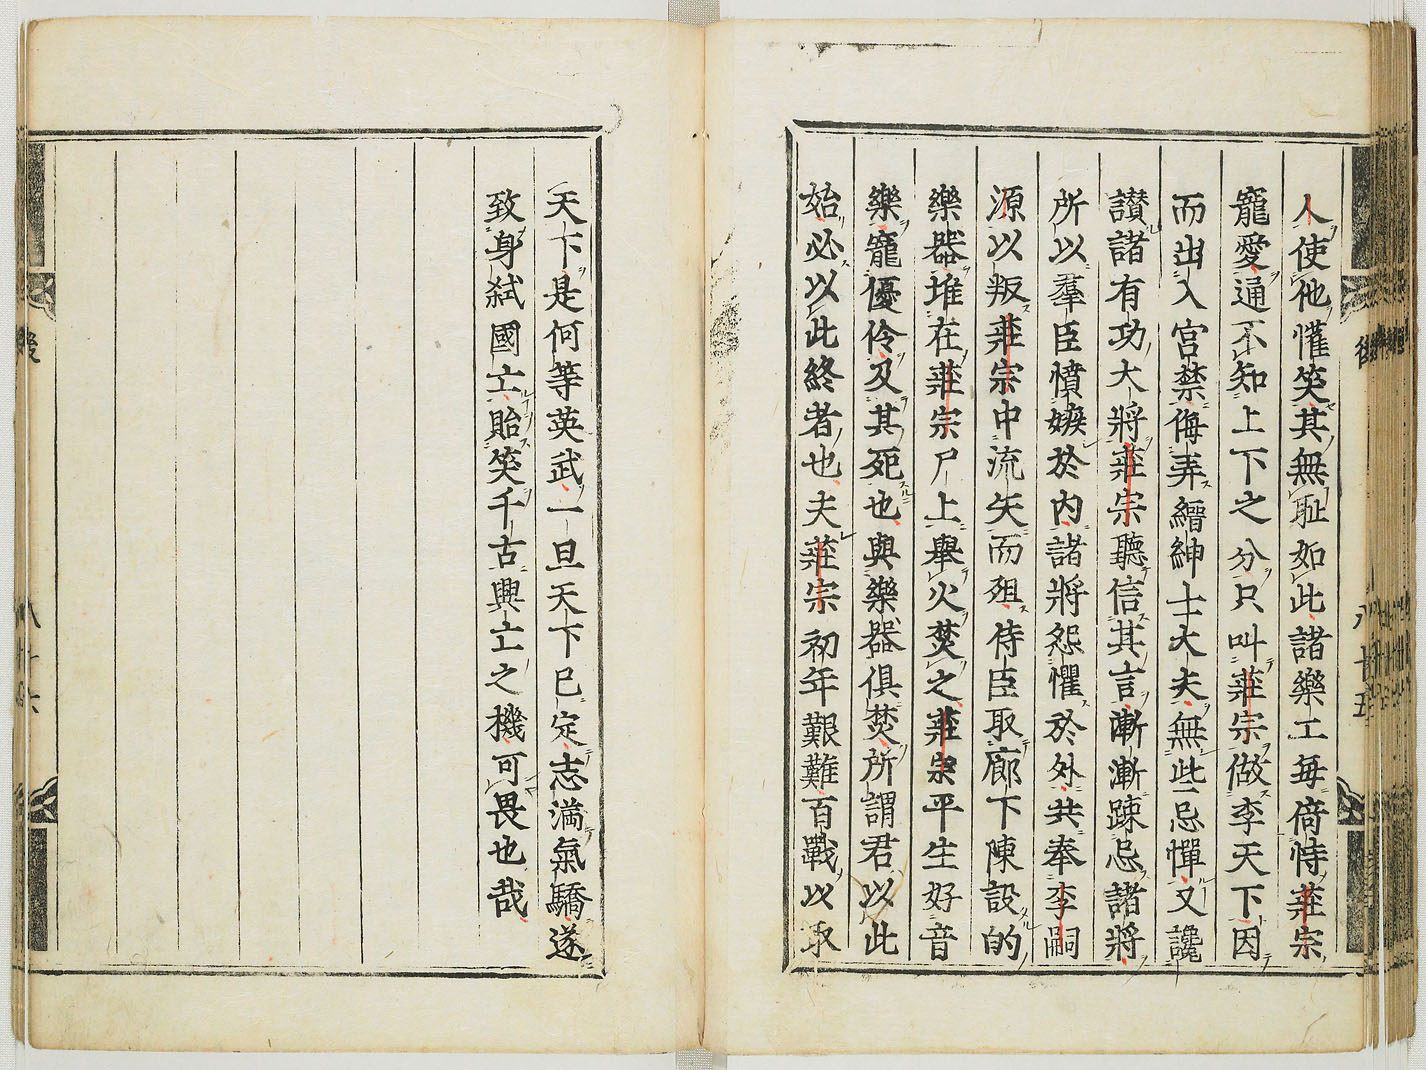 人使他懽笑其無恥如此諸樂工每倚恃莊宗
寵愛通不知上下之分只叫莊宗做李天下因
而出入宮禁侮弄縉紳士大夫無些忌憚又讒
讃諸有功大將莊宗聽信其言漸漸踈忌諸將
所以羣臣憤嫉於內諸將怨懼於外共奉李嗣
源以叛莊宗中流矢而殂侍臣取廊下陳設的
樂器堆在莊宗尸上舉火焚之莊宗平生好音
樂寵優伶及其死也與樂器俱焚所謂君以此
始必以此終者也夫莊宗初年艱難百戰以取
天下是何等英武一旦天下已定志滿氣驕遂
致身弒國亡貽笑千古興亡之機可畏也哉